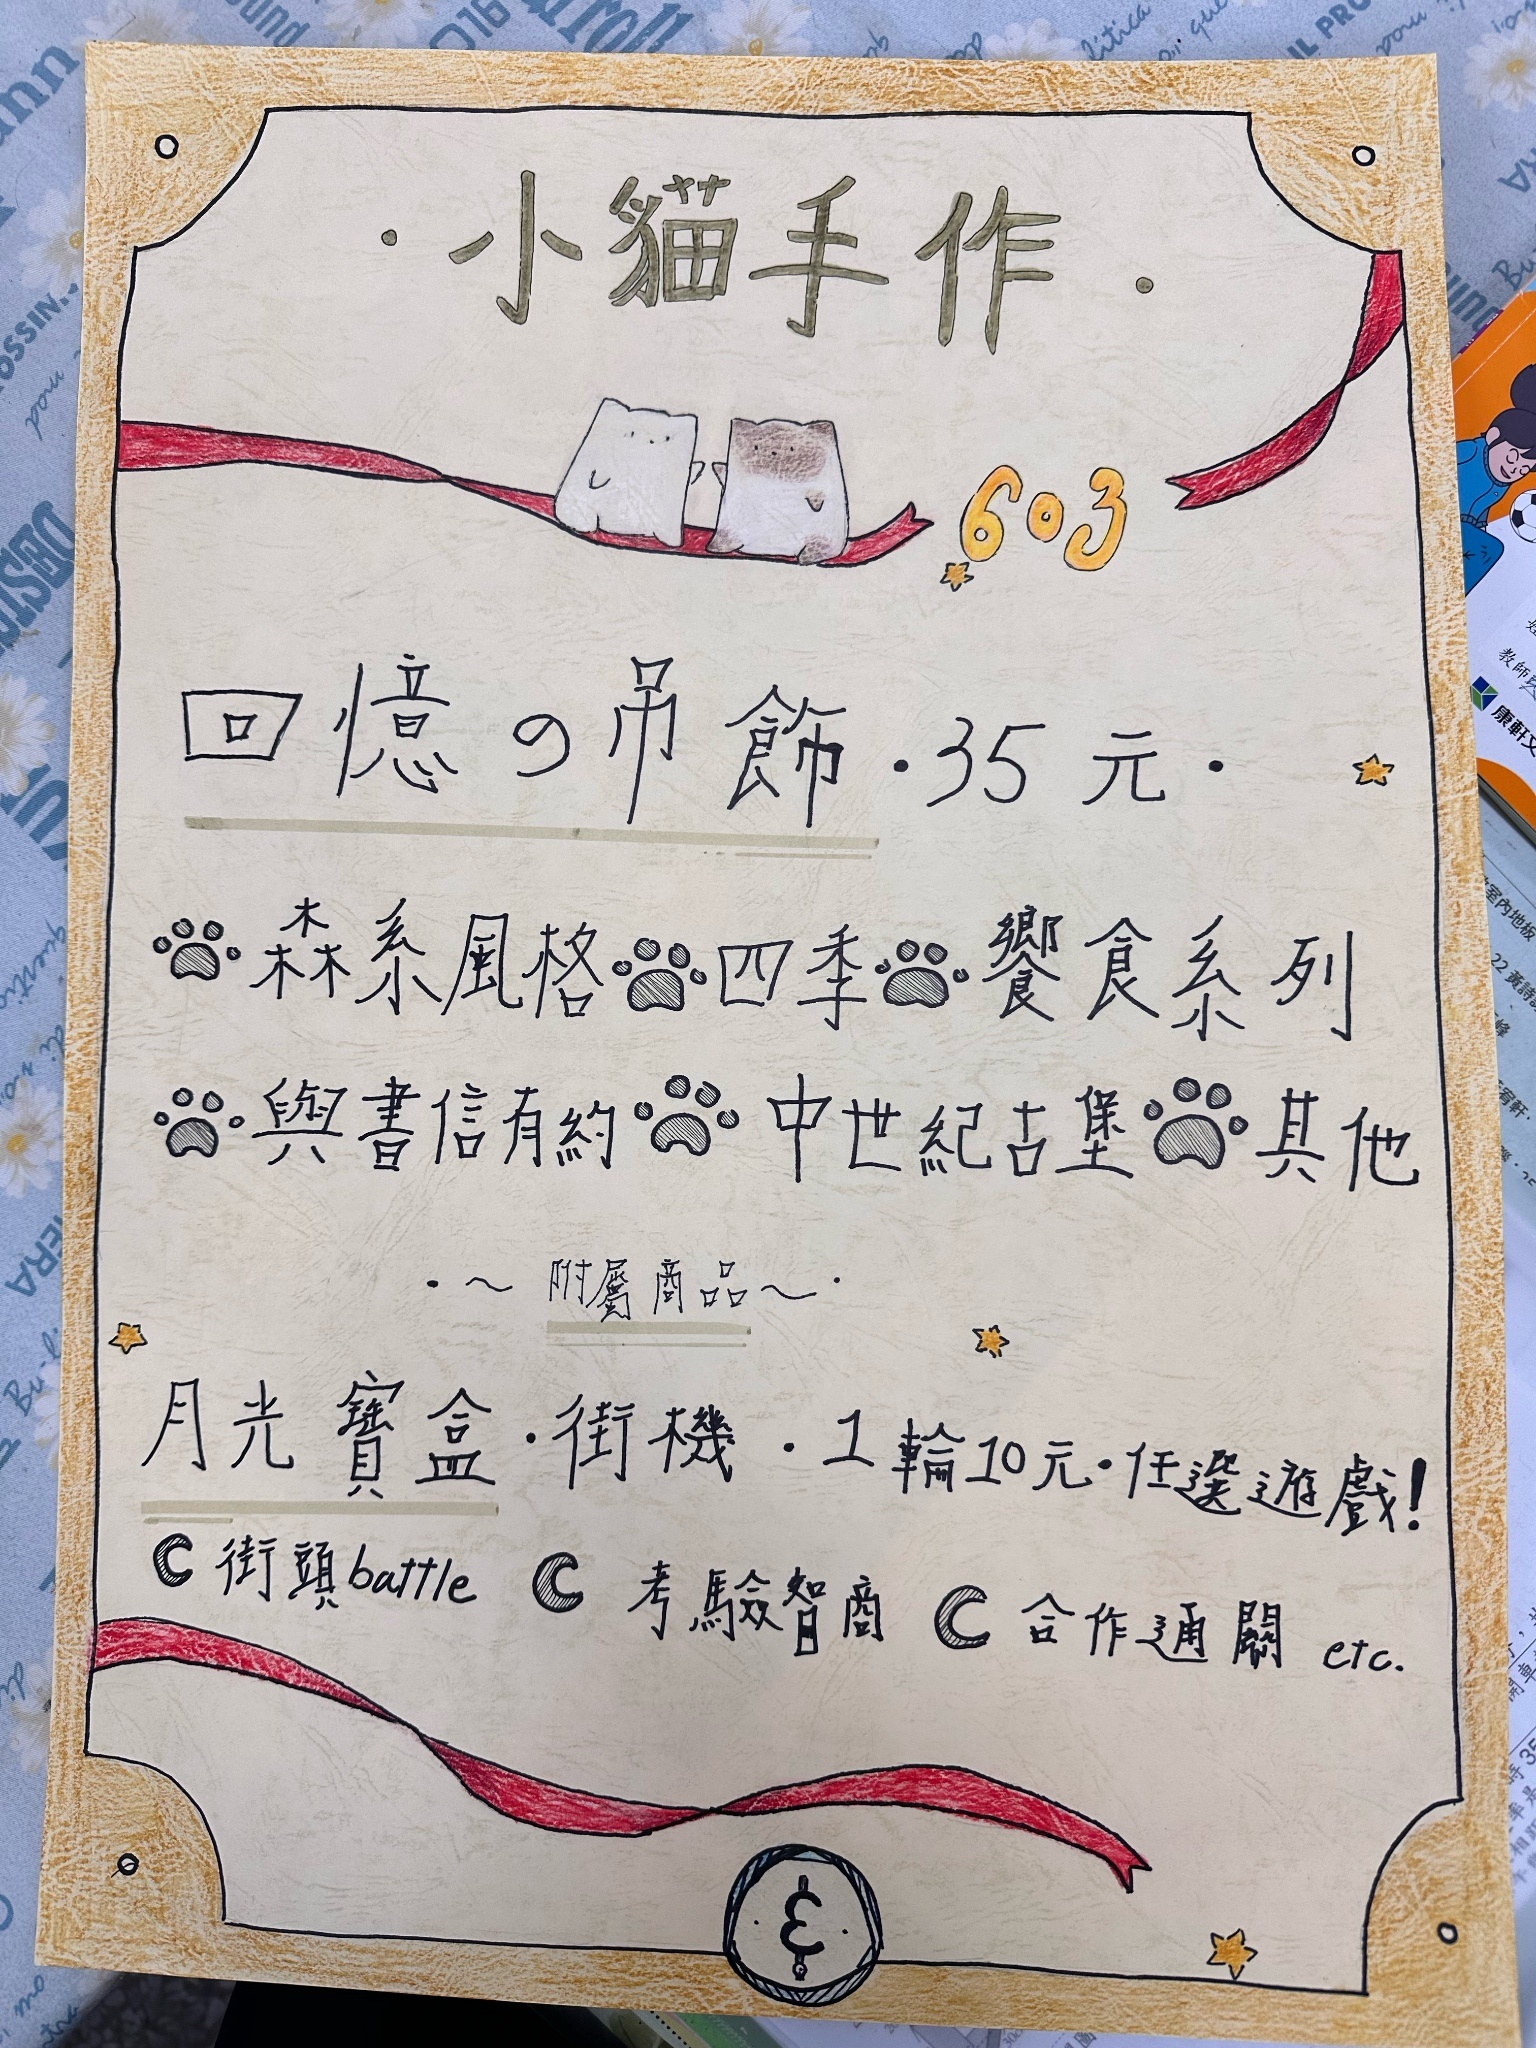 ·小貓手作·
603
回憶の吊飾·35元·
森系風格 四季 饗食系列
與書信有約 中世紀古堡 其他
·~附屬商品~·
月光寶盒·街機·1輪10元·任選遊戲!
街頭battle 考驗智商 合作通關 etc.